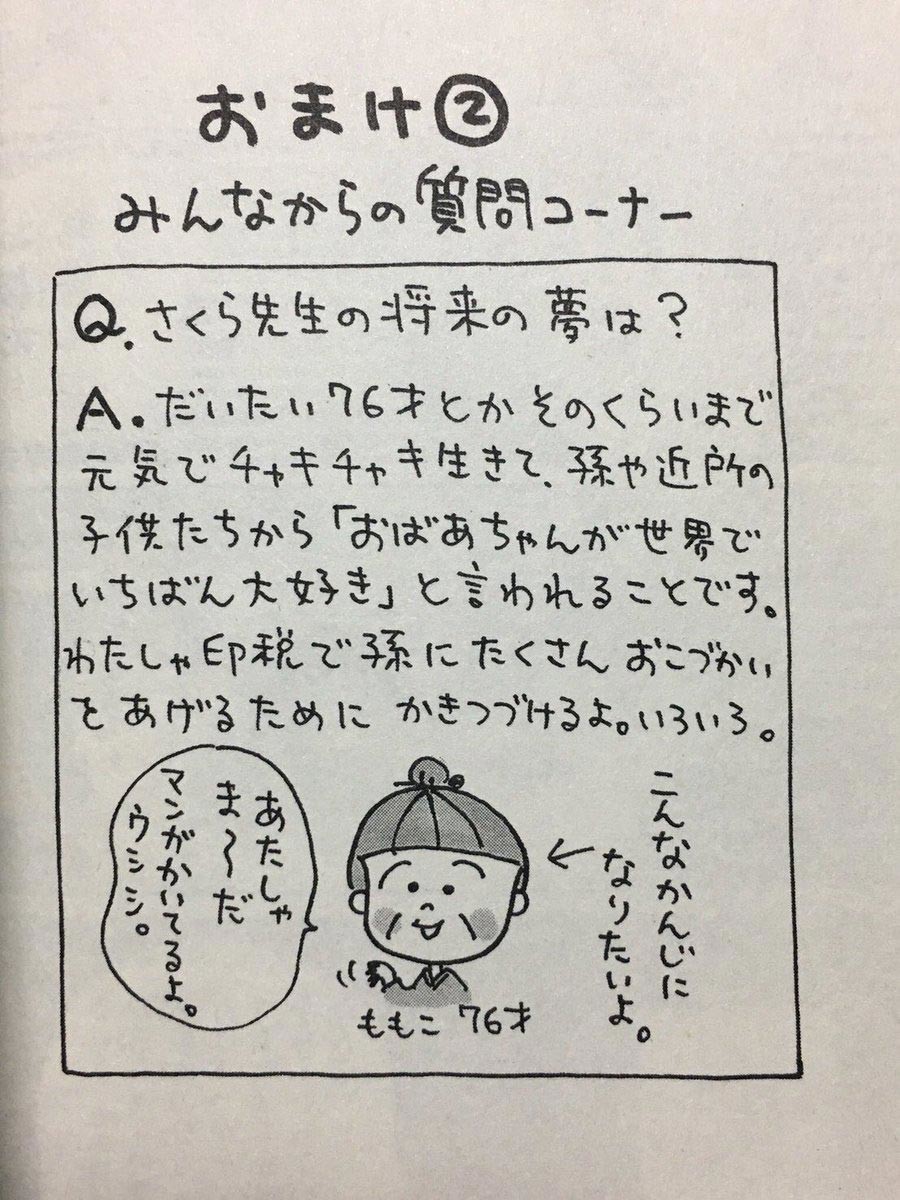 おまけ②
みんなからの質問コーナー
Q.さくら先生の将来の夢は?
A.だいたい76才とかそのくらいまで
元気でチャキチャキ生きて、孫や近所の
子供たちから「おばあちゃんが世界で
いちばん大好き」と言われることです。
わたしゃ印税で孫にたくさんおこづかい
をあげるためにかきつづけるよ。いろいろ。
こんなかんじに
なりたいよ。
←
あたしゃ
ま〜だ
マンガかいてるよ。
ウシシ。
ももこ 76才